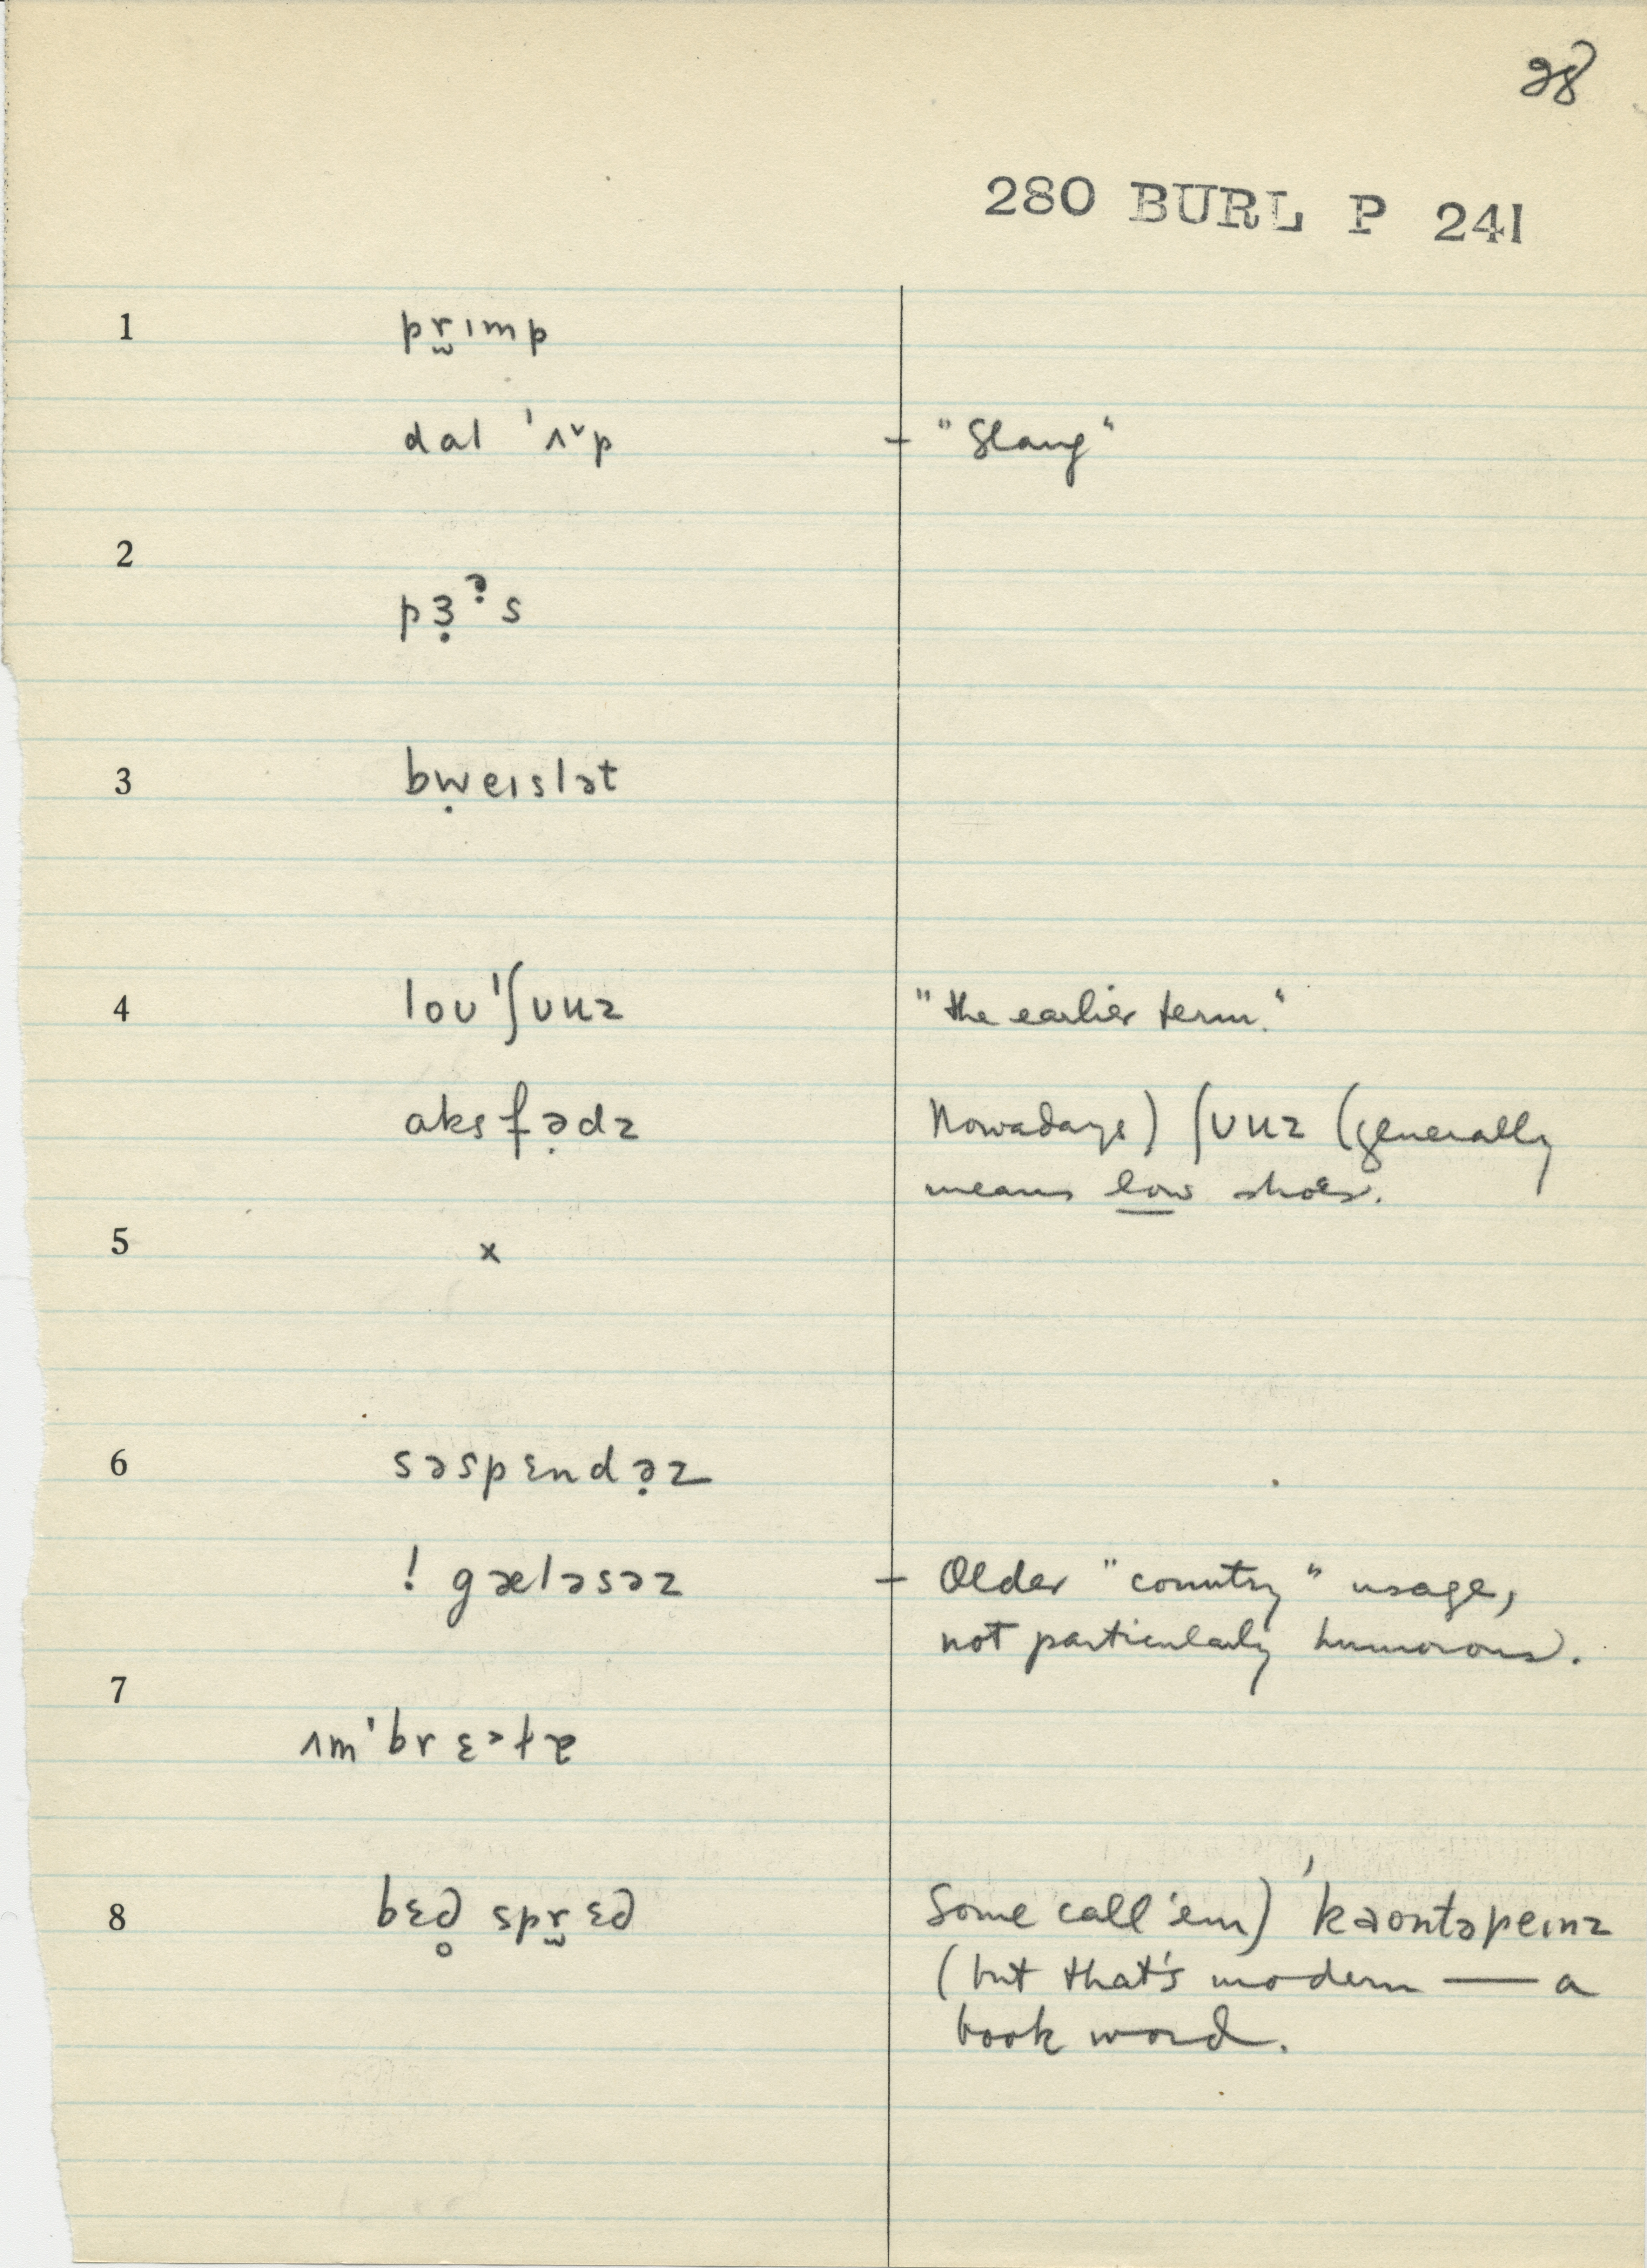 28
280 BURL P 241
1 pr̬ımp
dal 'ʌ˅p – "Slang"
2
pɜ̣ə̣s
3 bẉeıslət
4 loʊ'ʃʊuz "the earlier term."
aksfə̣dz Nowadays) ʃʊuz (generally
means low shoes.
5 x
6 səspɛndə̣z
! gæləsəz – Older "country" usage,
not particularly humorous.
7
ʌm'brɛ
8 bɛd̥ spr̬ɛd Some call 'em) 'kaontəpeınz
(but that's modern — a
book word.